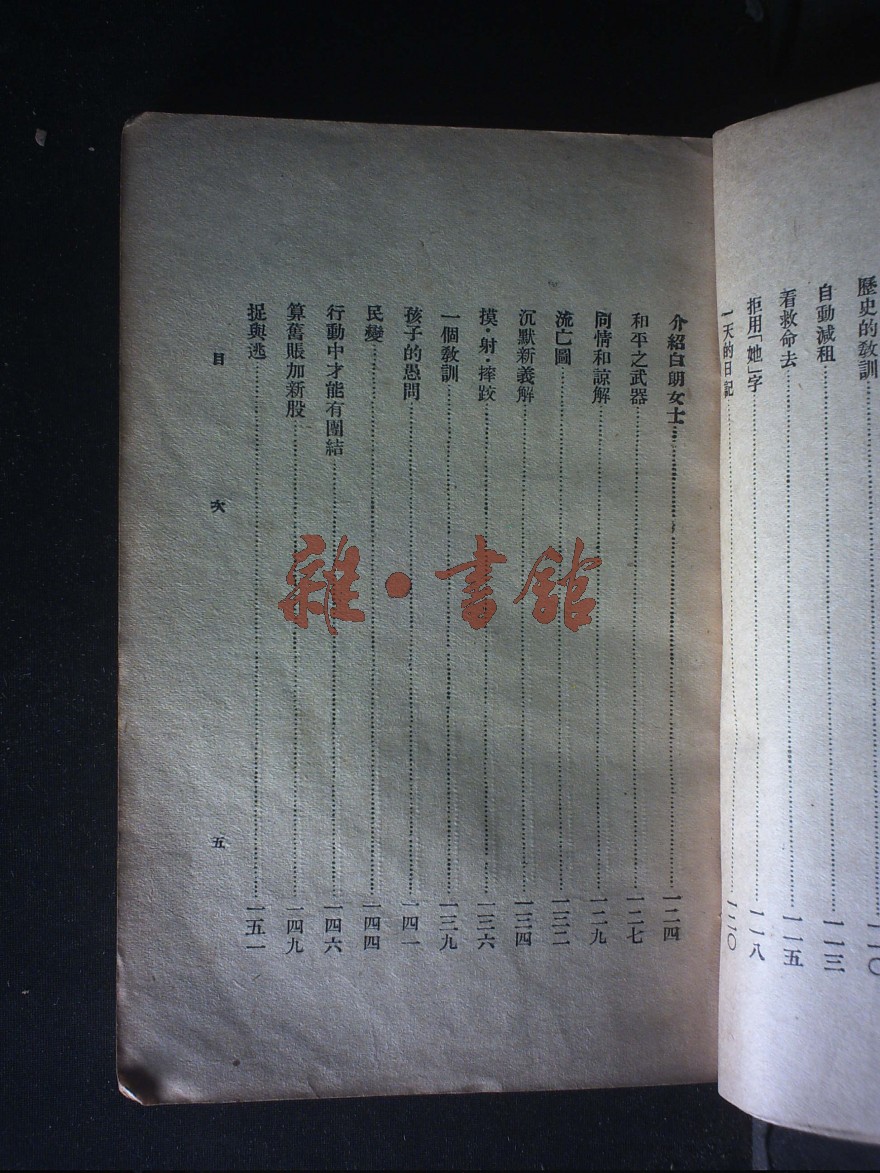 歷史的教訓……一一〇
自動減租……一一三
着救命去……一一五
拒用「她」字……一一八
一天的日記……一二〇
介紹白朗女士……一二四
和平之武器……一二七
同情和諒解……一二九
流亡圖……一三二
沉默新義解……一三四
摸・射・摔跤……一三六
一個教訓……一三九
孩子的愚問……一四一
民變……一四四
行動中才能有團結……一四六
算舊賬加新股……一四九
捉與逃……一五一
目次 五
雜・書館